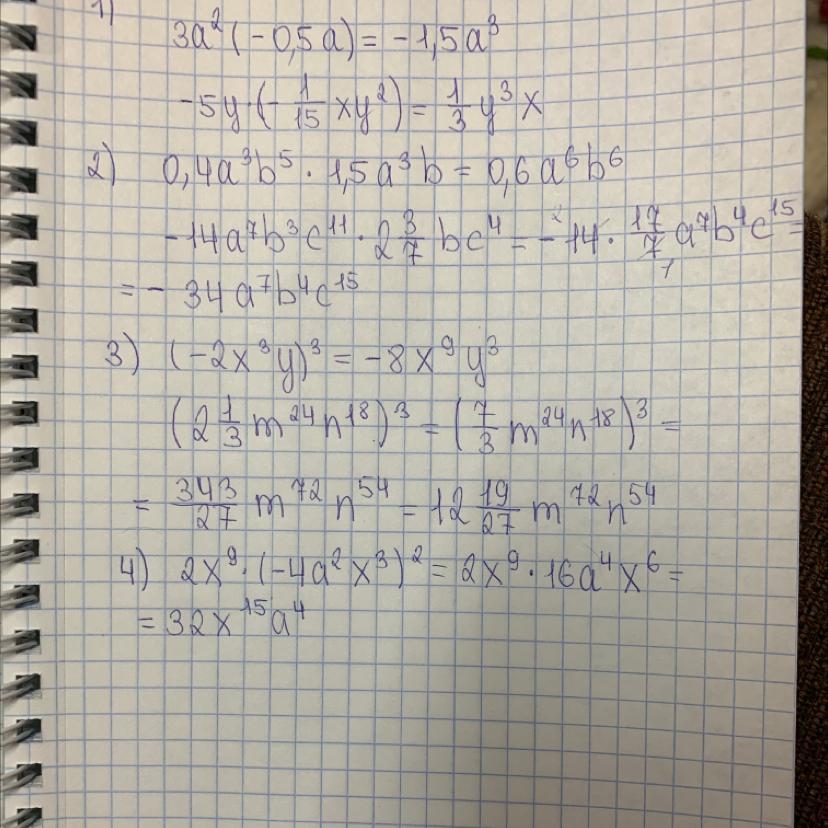 1)
3a²(-0,5a) = -1,5a³
-5y·(-1/15 xy²) = 1/3 y³x
2) 0,4a³b⁵ · 1,5a³b = 0,6a⁶b⁶
-14a⁷b³c¹¹ · 2 3/7 bc⁴ = -14 · 17/7 a⁷b⁴c¹⁵ =
= - 34a⁷b⁴c¹⁵
3) (-2x³y)³ = -8x⁹y³
(2 1/3 m²⁴n¹⁸)³ = (7/3 m²⁴n¹⁸)³ =
= 343/27 m⁷²n⁵⁴ = 12 19/27 m⁷²n⁵⁴
4) 2x⁹·(-4a²x³)² = 2x⁹·16a⁴x⁶ =
= 32x¹⁵a⁴